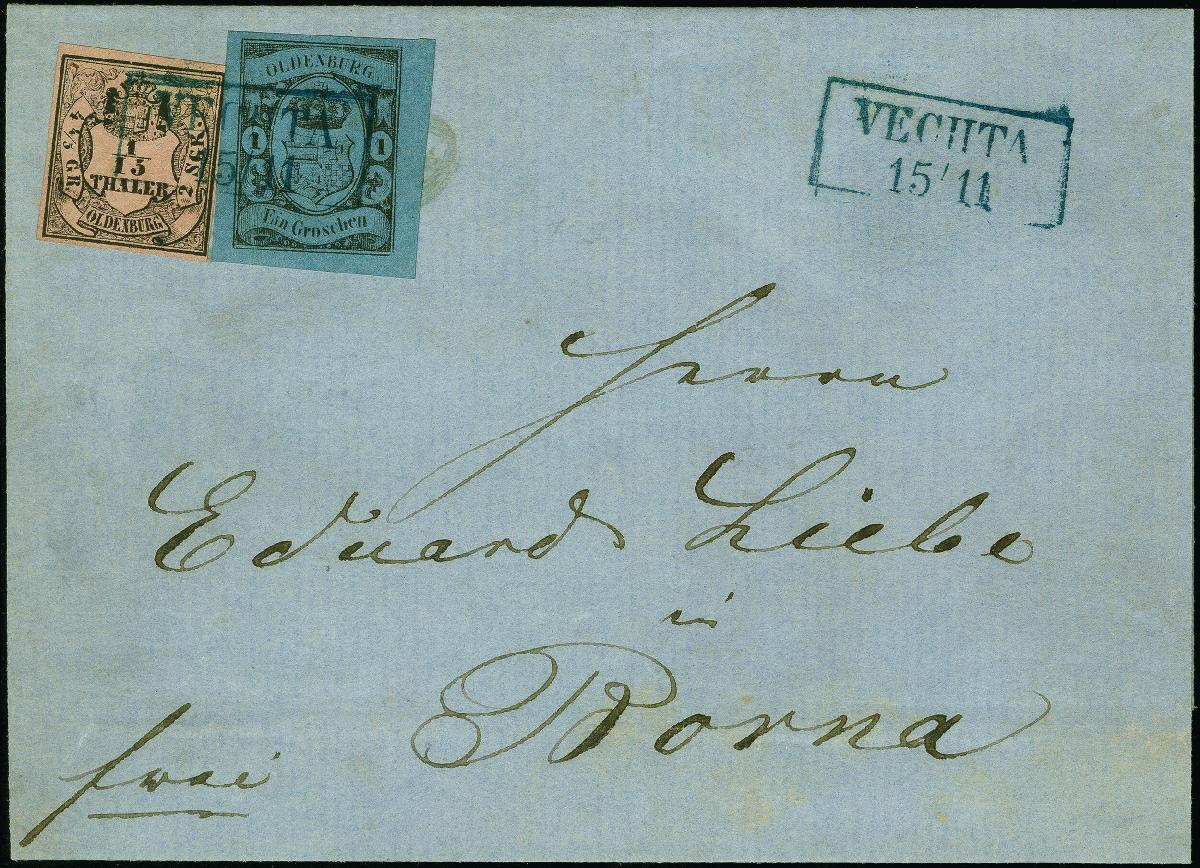 1
15
THALER
4 4/5 GR.
2 SGR.
OLDENBURG
OLDENBURG
1 1
Ein Groschen
VECHTA
15/11
VECHTA
15/11
Herrn
Eduard Liebe
in
Borna
frei